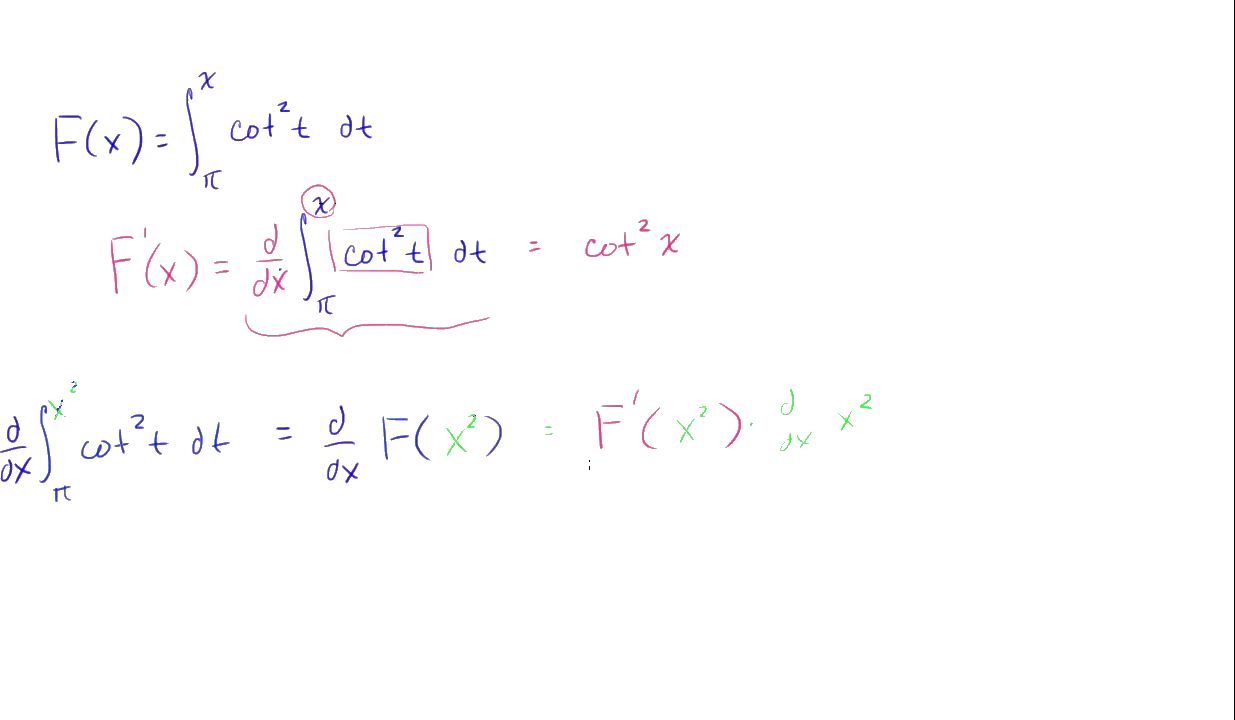 F(x) = ∫_π^x cot² t dt
F'(x) = d/dx ∫_π^x cot² t dt = cot² x
d/dx ∫_π^x² cot² t dt = d/dx F(x²) = F'(x²) · d/dx x²